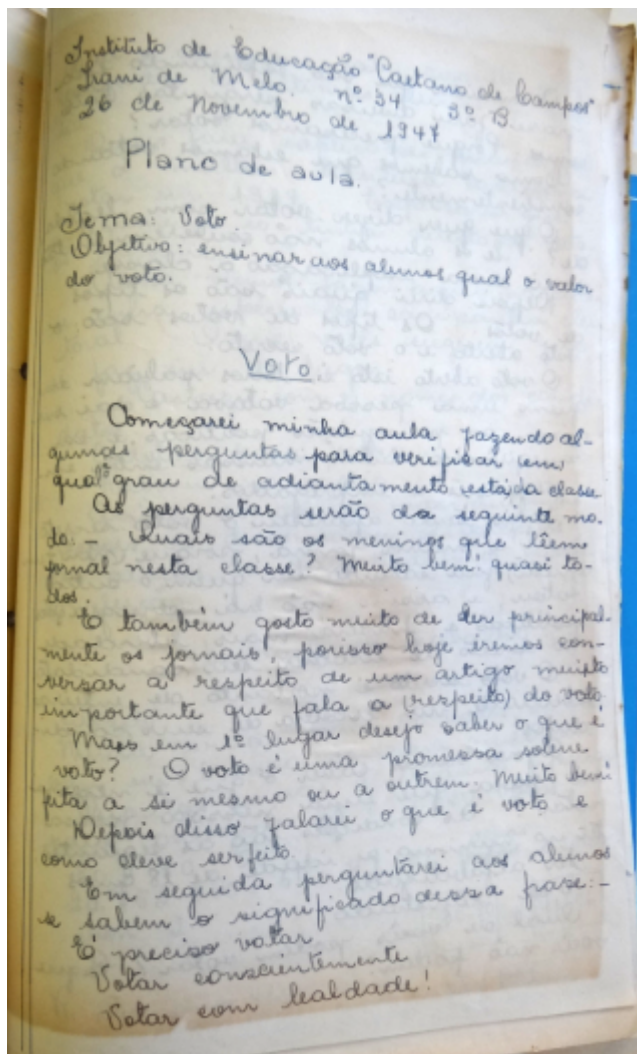 Instituto de Educação "Caetano de Campos"
Irani de Melo. nº 34 3º B.
26 de Novembro de 1947
Plano de aula.
Tema: Voto.
Objetivo: ensinar aos alunos qual o valor
do voto.
Voto.
Começarei minha aula fazendo al-
gumas perguntas para verificar em
qual grau de adiantamento está da classe
As perguntas serão do seguinte mo.
do: - Quais são os meninos que lêem
jornal nesta classe? Muito bem! quasi to-
dos.
E também gosto muito de ler principal-
mente os jornais, porisso hoje iremos con-
versar a respeito de um artigo muito
importante que fala a (respeito) do voto
Mas em 1º lugar desejo saber o que é
voto? O voto é uma promessa solene
fita a si mesmo ou a outrem. Muito bem!
Depois disso falarei o que é voto e
como deve ser feito.
Em seguida perguntarei aos alunos
se sabem o significado dessa frase: -
É preciso votar
Votar conscientemente
Votar com lealdade!